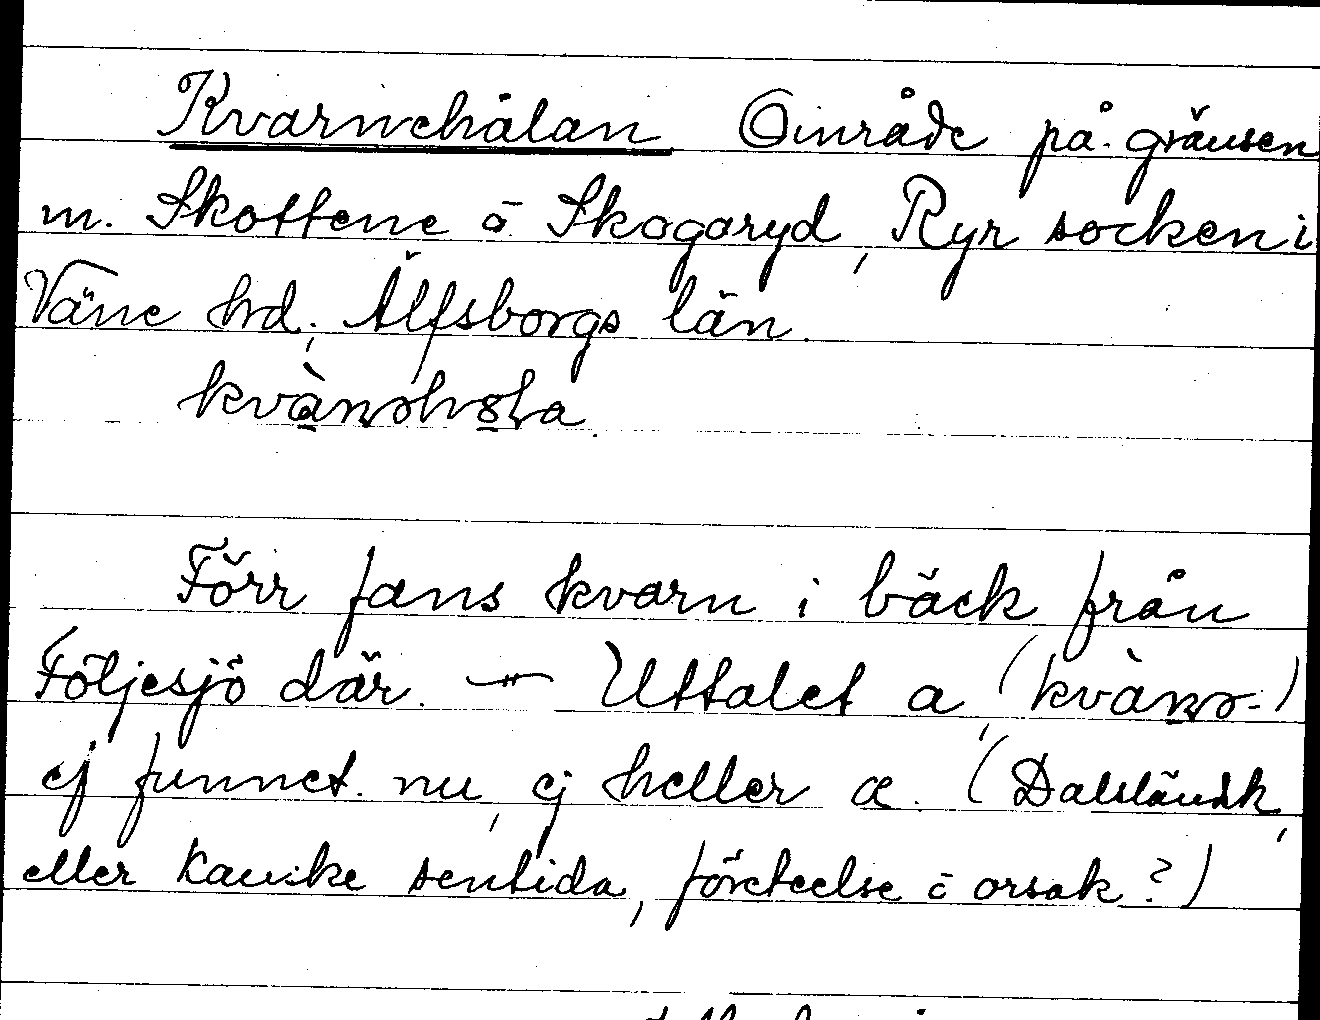 Kvarnehålan Område på gränsen
m. Skottene å Skogaryd, Ryr socken i
Väne hd, Älfsborgs län.
Förr fans kvarn i bäck från
Följesjö där. — Uttalet a, (kvànə-)
ej funnet nu, ej heller æ. (Dalsländsk,
eller kanske sentida, företeelse ō orsak?)